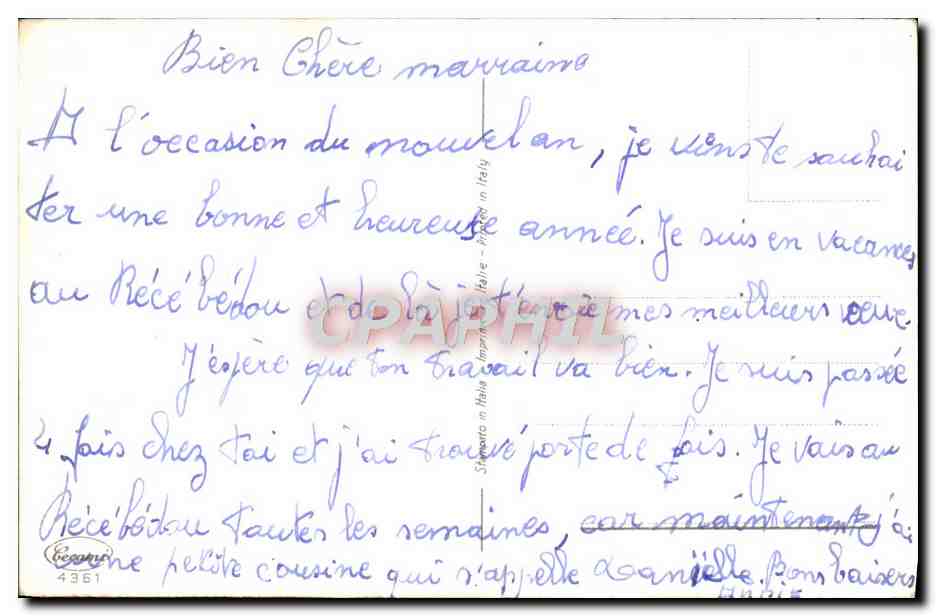 Bien Chère marraine
A l'occasion du nouvel an, je viens te souhai
ter une bonne et heureuse année. Je suis en vacances
au Récébédou et de là je t'envoie mes meilleurs veux.
J'espère que ton travail va bien. Je suis passée
4 fois chez toi et j'ai trouvé porte de fois. Je vais au
Récébédou toutes les semaines, car maintenant j'ai
une petite cousine qui s'appelle Danielle. Bons baisers
Annie
Stampato in Italia - Imprimé en Italie - Printed in Italy
CPAPHIL
Cecami
4361